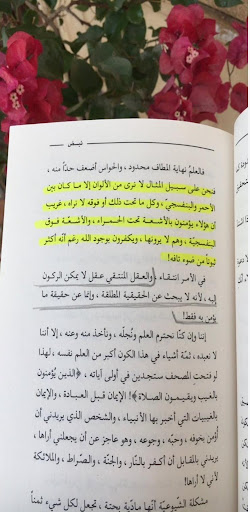 نبـــض
فالعلمُ نهاية المطاف محدود ، والحواس أضعف حداً منه ،
فنحن على سبيل المثال لا نرى من الألوان إلا ما كان بين
الأحمر والبنفسجيّ ، وكل ما تحت ذلك أو فوقه لا نراه ، غريب
أن هؤلاء يؤمنون بالأشعة تحت الحمراء ، والأشعّة فوق
البنفسجيّة ، وهم لا يرونها ، ويكفرون بوجود الله رغم أنّه أكثر
ثبوتاً من ضوء تافه!
في الأمر انتقاء ، والعقل المنتقي عقل لا يمكن الركون
إليه ، لأنه لا يبحث عن الحقيقية المطلقة ، وإنما عن حقيقة ما
يؤمن به فقط!
إننا وإن كنّا نحترم العلم ونُجلّه ، ونأخذ منه وعنه ، إلا أننا
لا نعبده ، ثمة أشياء في هذا الكون أكبر من العلم نفسه ، لهذا
لو فتحتِ المصحف ستجدين في أولى آياته ، ﴿الذين يؤمنون
بالغيب ويقيمون الصلاة﴾! الإيمان قبل العبادة ، والإيمان
بالغيبيات التي أخبر بها الأنبياء ، والشخص الذي يريدني أن
أؤمن بخوفه ، وحبّه ، وجوعه ، وهو عاجز عن أن يجعلني أراها ،
يريدني بالمقابل أن أكفر بالنّار ، والجنّة ، والصّراط ، والملائكة
لأني لا أراها!
مشكلة الشيوعيّة أنّها ماديّة بحتة ، تجعل لكل شيء ثمناً